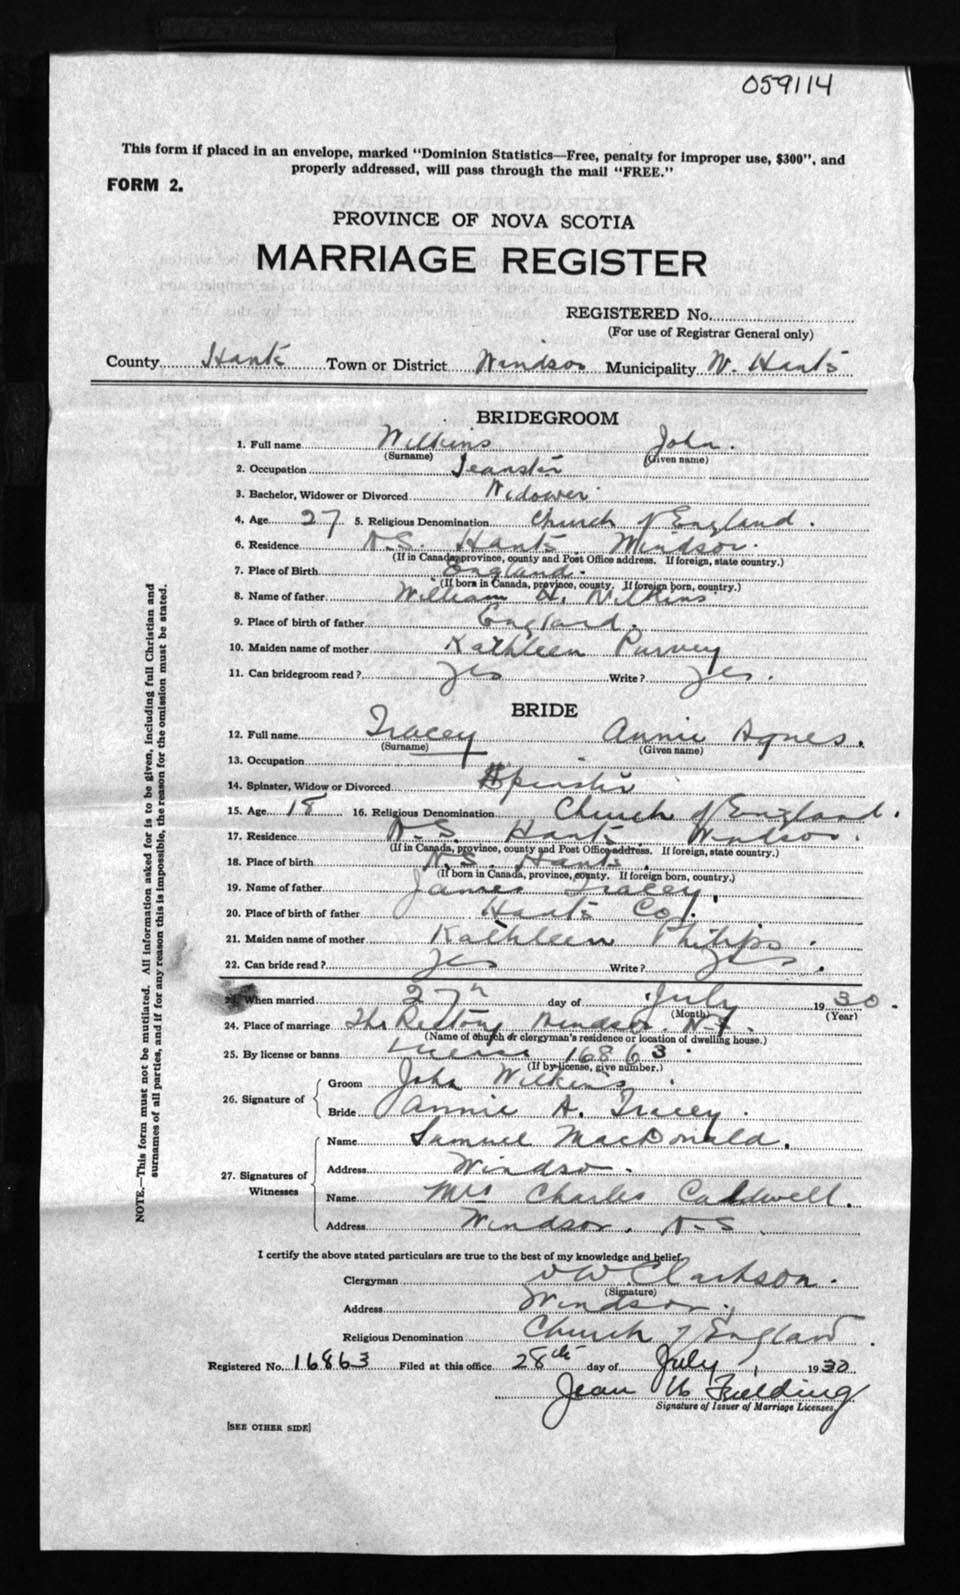 059114
This form if placed in an envelope, marked "Dominion Statistics—Free, penalty for improper use, $300", and
properly addressed, will pass through the mail "FREE."
FORM 2.
PROVINCE OF NOVA SCOTIA
MARRIAGE REGISTER
REGISTERED No.
(For use of Registrar General only)
County Hants Town or District Windsor Municipality W. Hants
BRIDEGROOM
1. Full name Wilkins John.
(Surname) (Given name)
2. Occupation Teamster
3. Bachelor, Widower or Divorced Widower
4. Age 27 5. Religious Denomination Church of England.
6. Residence N.S. Hants Windsor.
(If in Canada, province, county and Post Office address. If foreign, state country.)
7. Place of Birth England.
(If born in Canada, province, county. If foreign born, country.)
8. Name of father William H. Wilkins
9. Place of birth of father England.
10. Maiden name of mother Kathleen Purvey
11. Can bridegroom read? yes Write? yes.
BRIDE
12. Full name Tracey Annie Agnes.
(Surname) (Given name)
13. Occupation
14. Spinster, Widow or Divorced Spinster
15. Age 18 16. Religious Denomination Church of England.
17. Residence N.S. Hants Windsor.
(If in Canada, province, county and Post Office address. If foreign, state country.)
18. Place of birth N.S. Hants.
(If born in Canada, province, county. If foreign born, country.)
19. Name of father James Tracey.
20. Place of birth of father Hants Co.
21. Maiden name of mother Kathleen Philips.
22. Can bride read? yes Write? yes.
23. When married 27th day of July 1930.
(Month) (Year)
24. Place of marriage The Rectory Windsor. N.S.
(Name of church or clergyman's residence or location of dwelling house.)
25. By license or banns License 16863.
(If by license, give number.)
26. Signature of
Groom John Wilkins.
Bride Annie A. Tracey.
27. Signatures of Witnesses
Name Samuel MacDonald.
Address Windsor.
Name Mrs Charles Caldwell.
Address Windsor. N.S.
I certify the above stated particulars are true to the best of my knowledge and belief.
Clergyman W Clarkson.
(Signature)
Address Windsor.
Religious Denomination Church of England.
Registered No. 16863 Filed at this office 28th day of July, 1930
Jean Fielding
Signature of Issuer of Marriage Licenses.
[SEE OTHER SIDE]
NOTE.—This form must not be mutilated. All information asked for is to be given, including full Christian and
surnames of all parties, and if for any reason this is impossible, the reason for the omission must be stated.